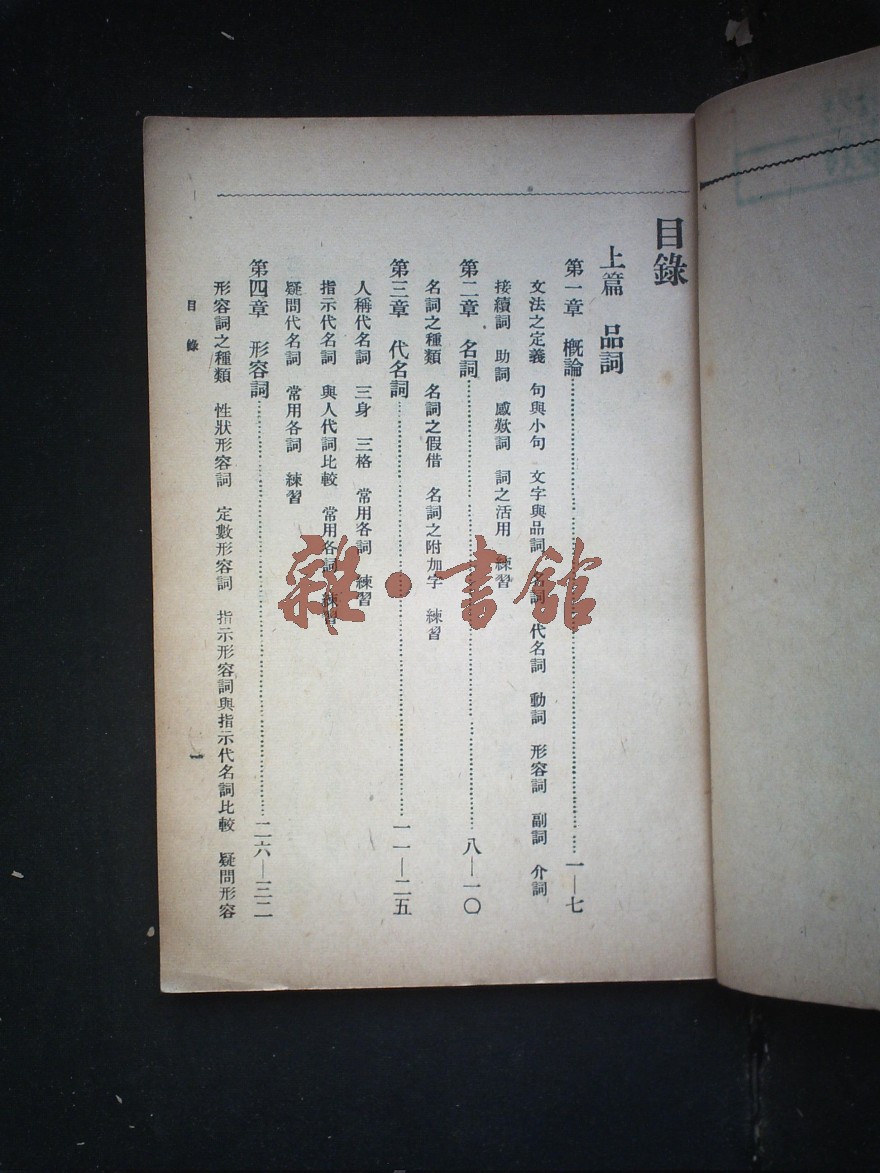 目錄
上篇 品詞
第一章 概論……一—七
文法之定義 句與小句 文字與品詞 名詞 代名詞 動詞 形容詞 副詞 介詞
接續詞 助詞 感歎詞 詞之活用 練習
第二章 名詞……八—一〇
名詞之種類 名詞之假借 名詞之附加字 練習
第三章 代名詞……一一—二五
人稱代名詞 三身 三格 常用各詞 練習
指示代名詞 與人代詞比較 常用各詞 練習
疑問代名詞 常用各詞 練習
第四章 形容詞……二六—三二
形容詞之種類 性狀形容詞 定數形容詞 指示形容詞與指示代名詞比較 疑問形容
目錄
一
雜·書館